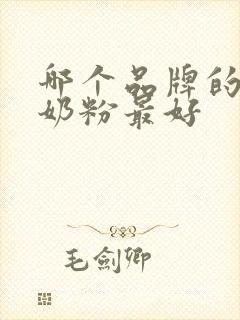 哪个品牌的
奶粉最好
毛剑卿